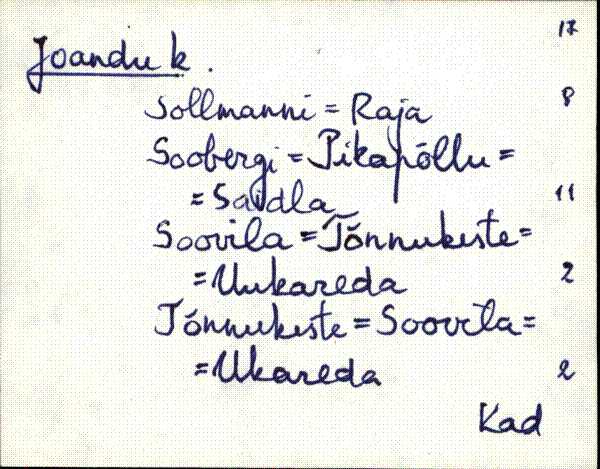 17
Joandu k.
Sollmanni = Raja 8
Soobergi = Pikapõllu =
= Saidla 11
Soovila = Tõnnukeste =
= Uukareda 2
Tõnnukeste = Soovila =
= Ukareda 2
Kad